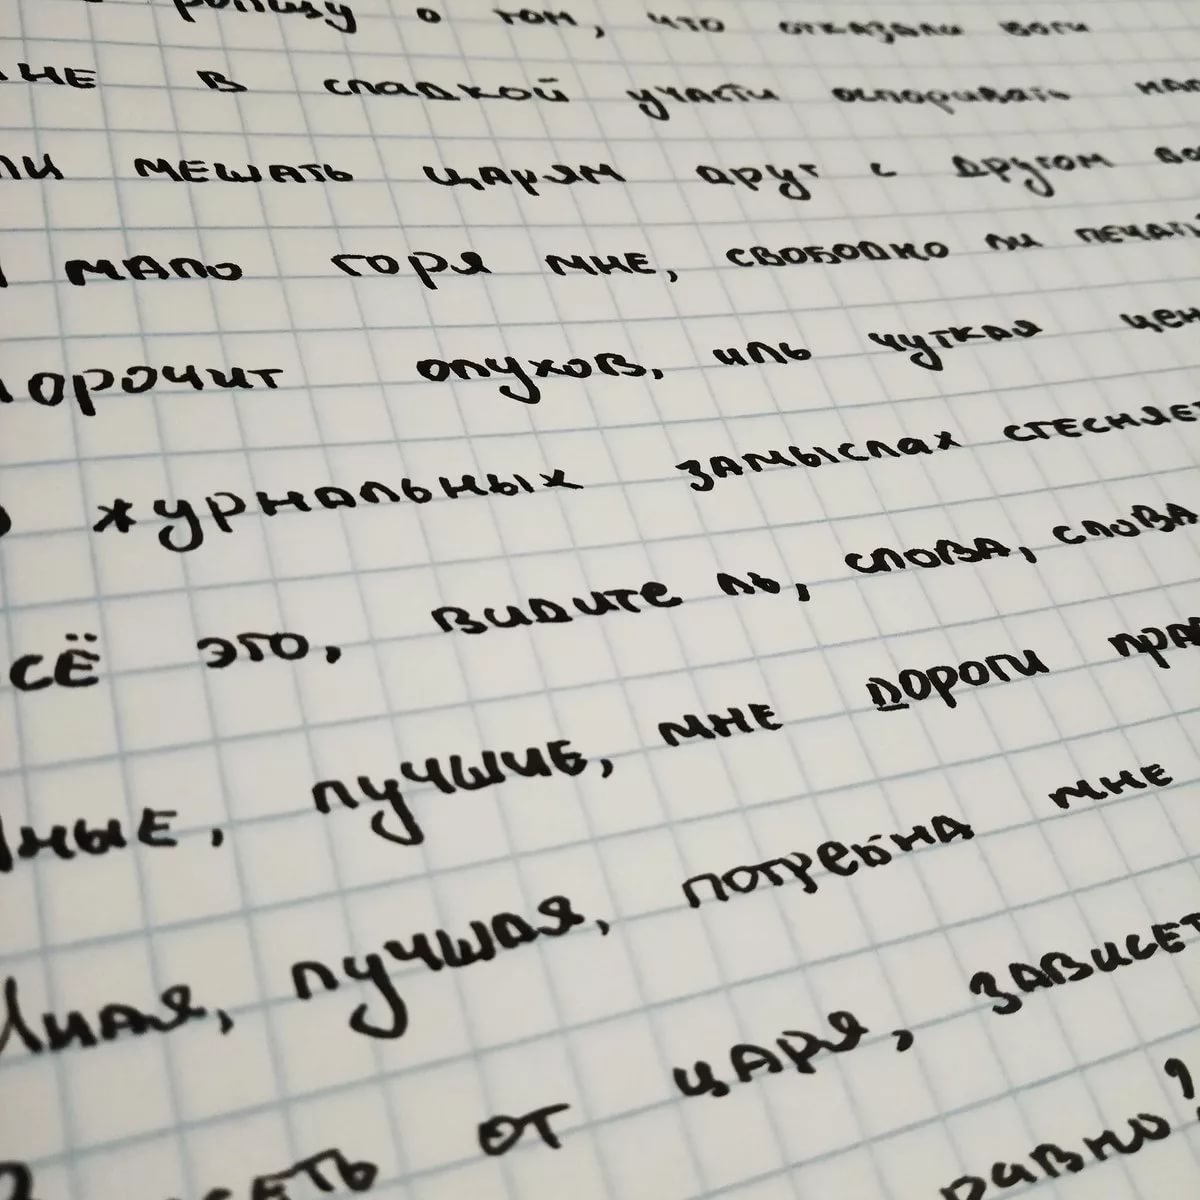 ропщу о том, что отказали боги
мне в сладкой участи оспоривать нал
ли мешать царям друг с другом во
мало горя мне, свободно ли печать
орочит олухов, иль чуткая цен
журнальных замыслах стесняет
сё это, видите ль, слова, слова
ные, лучшие, мне дороги пра
Иная, лучшая, потребна мне
от царя, зависет
равно?